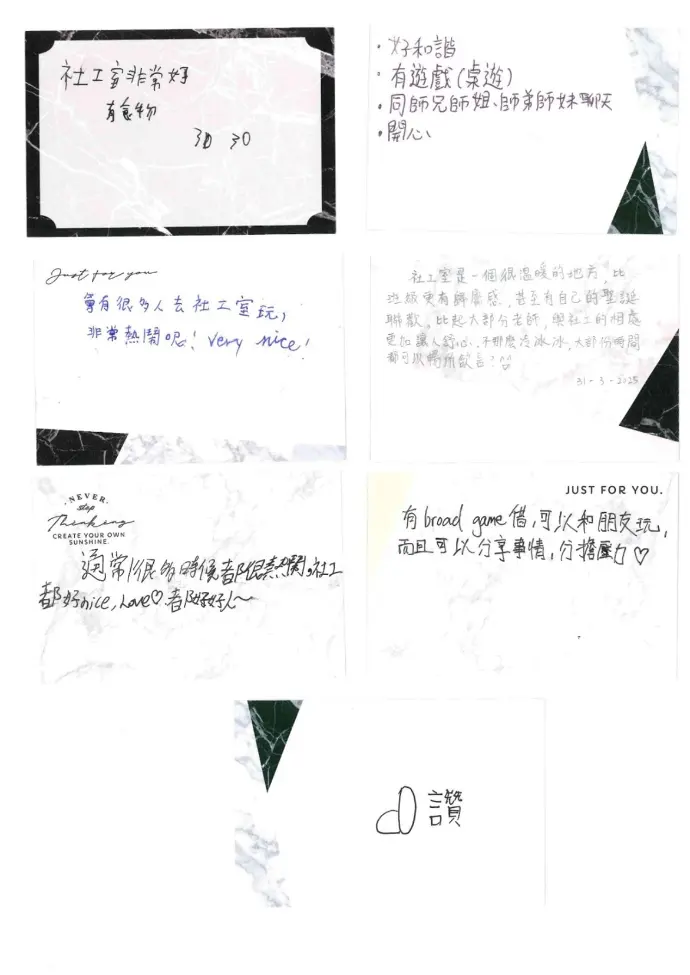 社工室非常好
有食物
· 好和諧
· 有遊戲(桌遊)
· 同師兄師姐、師弟師妹聊天
· 開心
Just for you
會有很多人去社工室玩,
非常熱鬧呢! Very nice!
社工室是一個很溫暖的地方, 比
班級更有歸屬感, 甚至有自己的聖誕
聯歡。比起大部分老師, 與社工的相處
更加讓人舒心、不那麼冷冰冰, 大部份時間
都可以暢所欲言?
31-3-2025
·NEVER·
stop
Thinking
CREATE YOUR OWN
SUNSHINE.
通常很多時候都很熱鬧。社工
都好nice, Love♡ 都好好人~
JUST FOR YOU.
有 broad game 借, 可以和朋友玩,
而且可以分享事情, 分擔壓力♡
讚